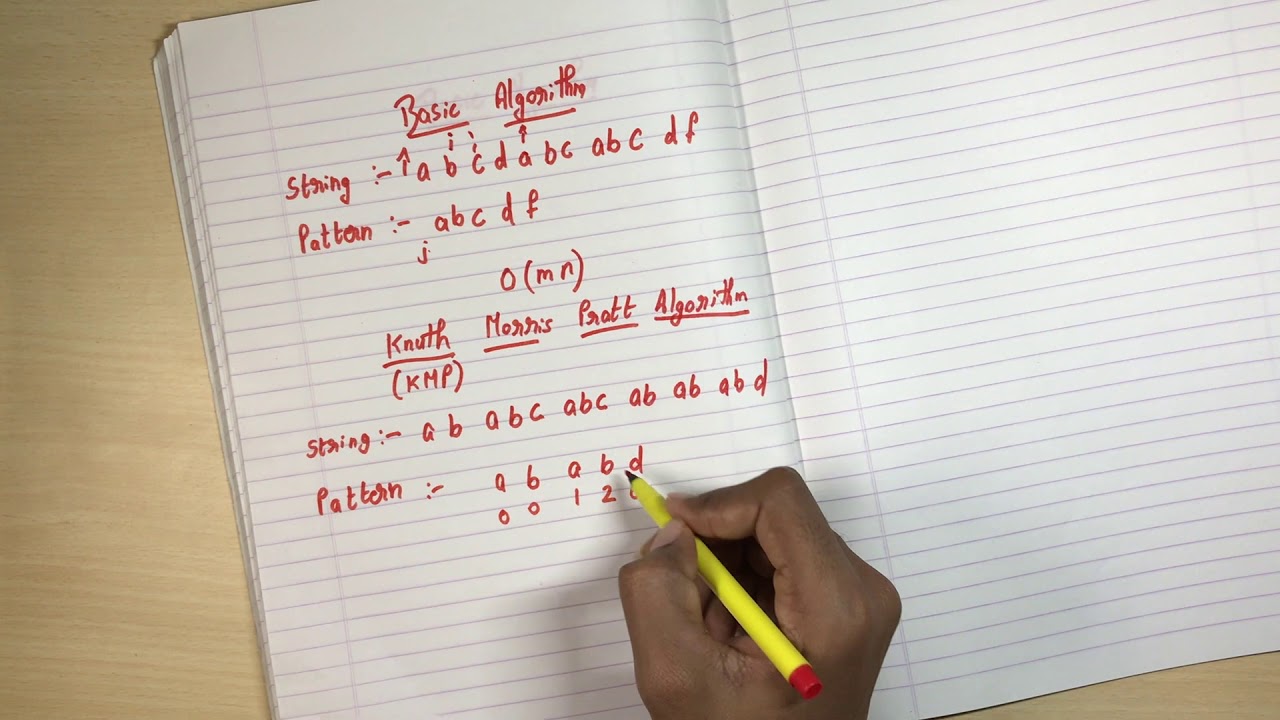 Basic Algorithm
i
String :- a b c d a b c a b c d f
Pattern :- a b c d f
j
O(mn)
Knuth Morris Pratt Algorithm
(KMP)
String :- a b a b c a b c a b a b a b d
Pattern :- a b a b d
0 0 1 2